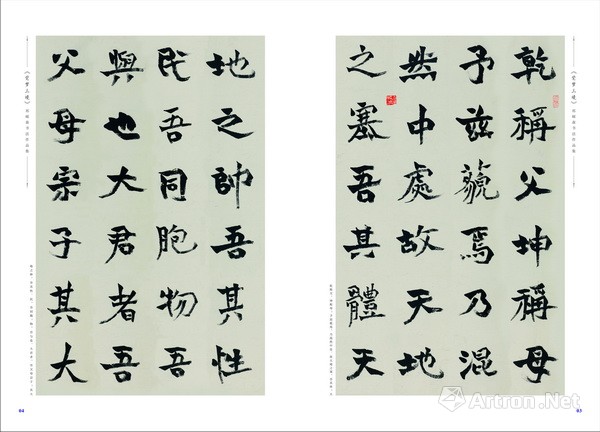 乾稱父坤稱母
予茲藐焉乃混
然中處故天地
之塞吾其體天
地之帥吾其性
民吾同胞物吾
與也大君者吾
父母宗子其大
03
04
Artron.Net